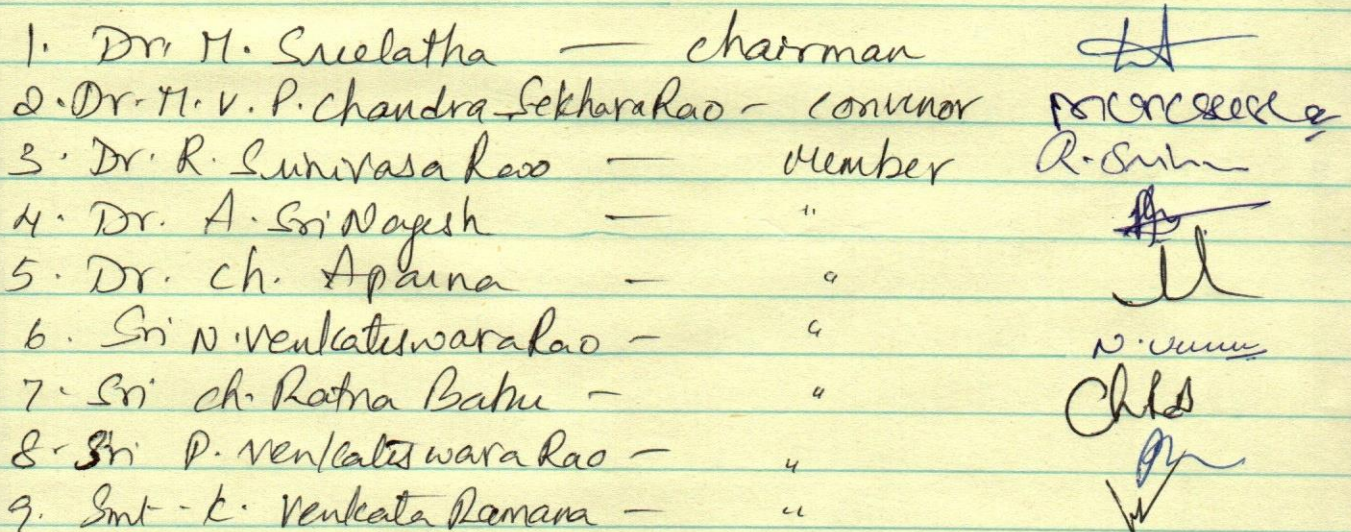 1. Dr. M. Sreelatha — chairman
2. Dr. M. V. P. Chandra Sekhara Rao - convenor
3. Dr. R. Srinivasa Rao — Member R. Srini
4. Dr. A. Sri Nagesh — "
5. Dr. Ch. Aparna — "
6. Sri N. Venkateswara Rao - "
7. Sri Ch. Ratna Babu - "
8. Sri P. Venkateswara Rao - "
9. Smt. K. Venkata Ramana - "